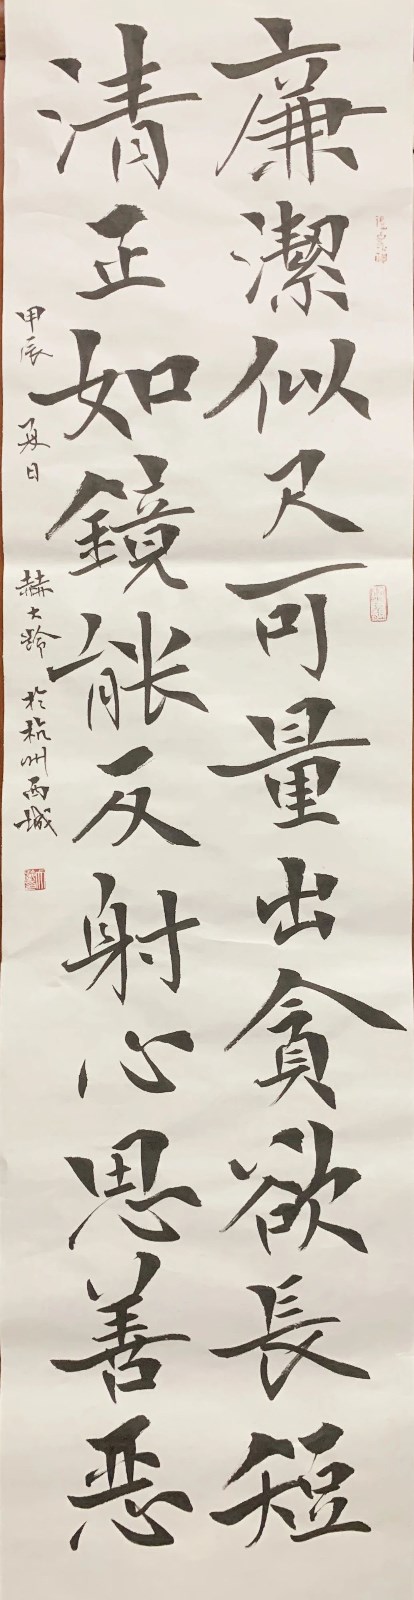 廉潔似尺可量出貪欲長短
清正如鏡能反射心思善惡
甲辰夏日赫大龄於杭州西城